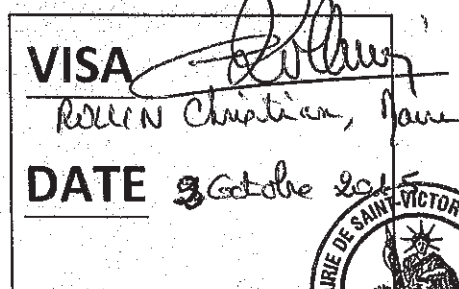 VISA
ROLLIN Christian, Maire
DATE 3 Octobre 2015
MAIRIE DE SAINT-VICTOR